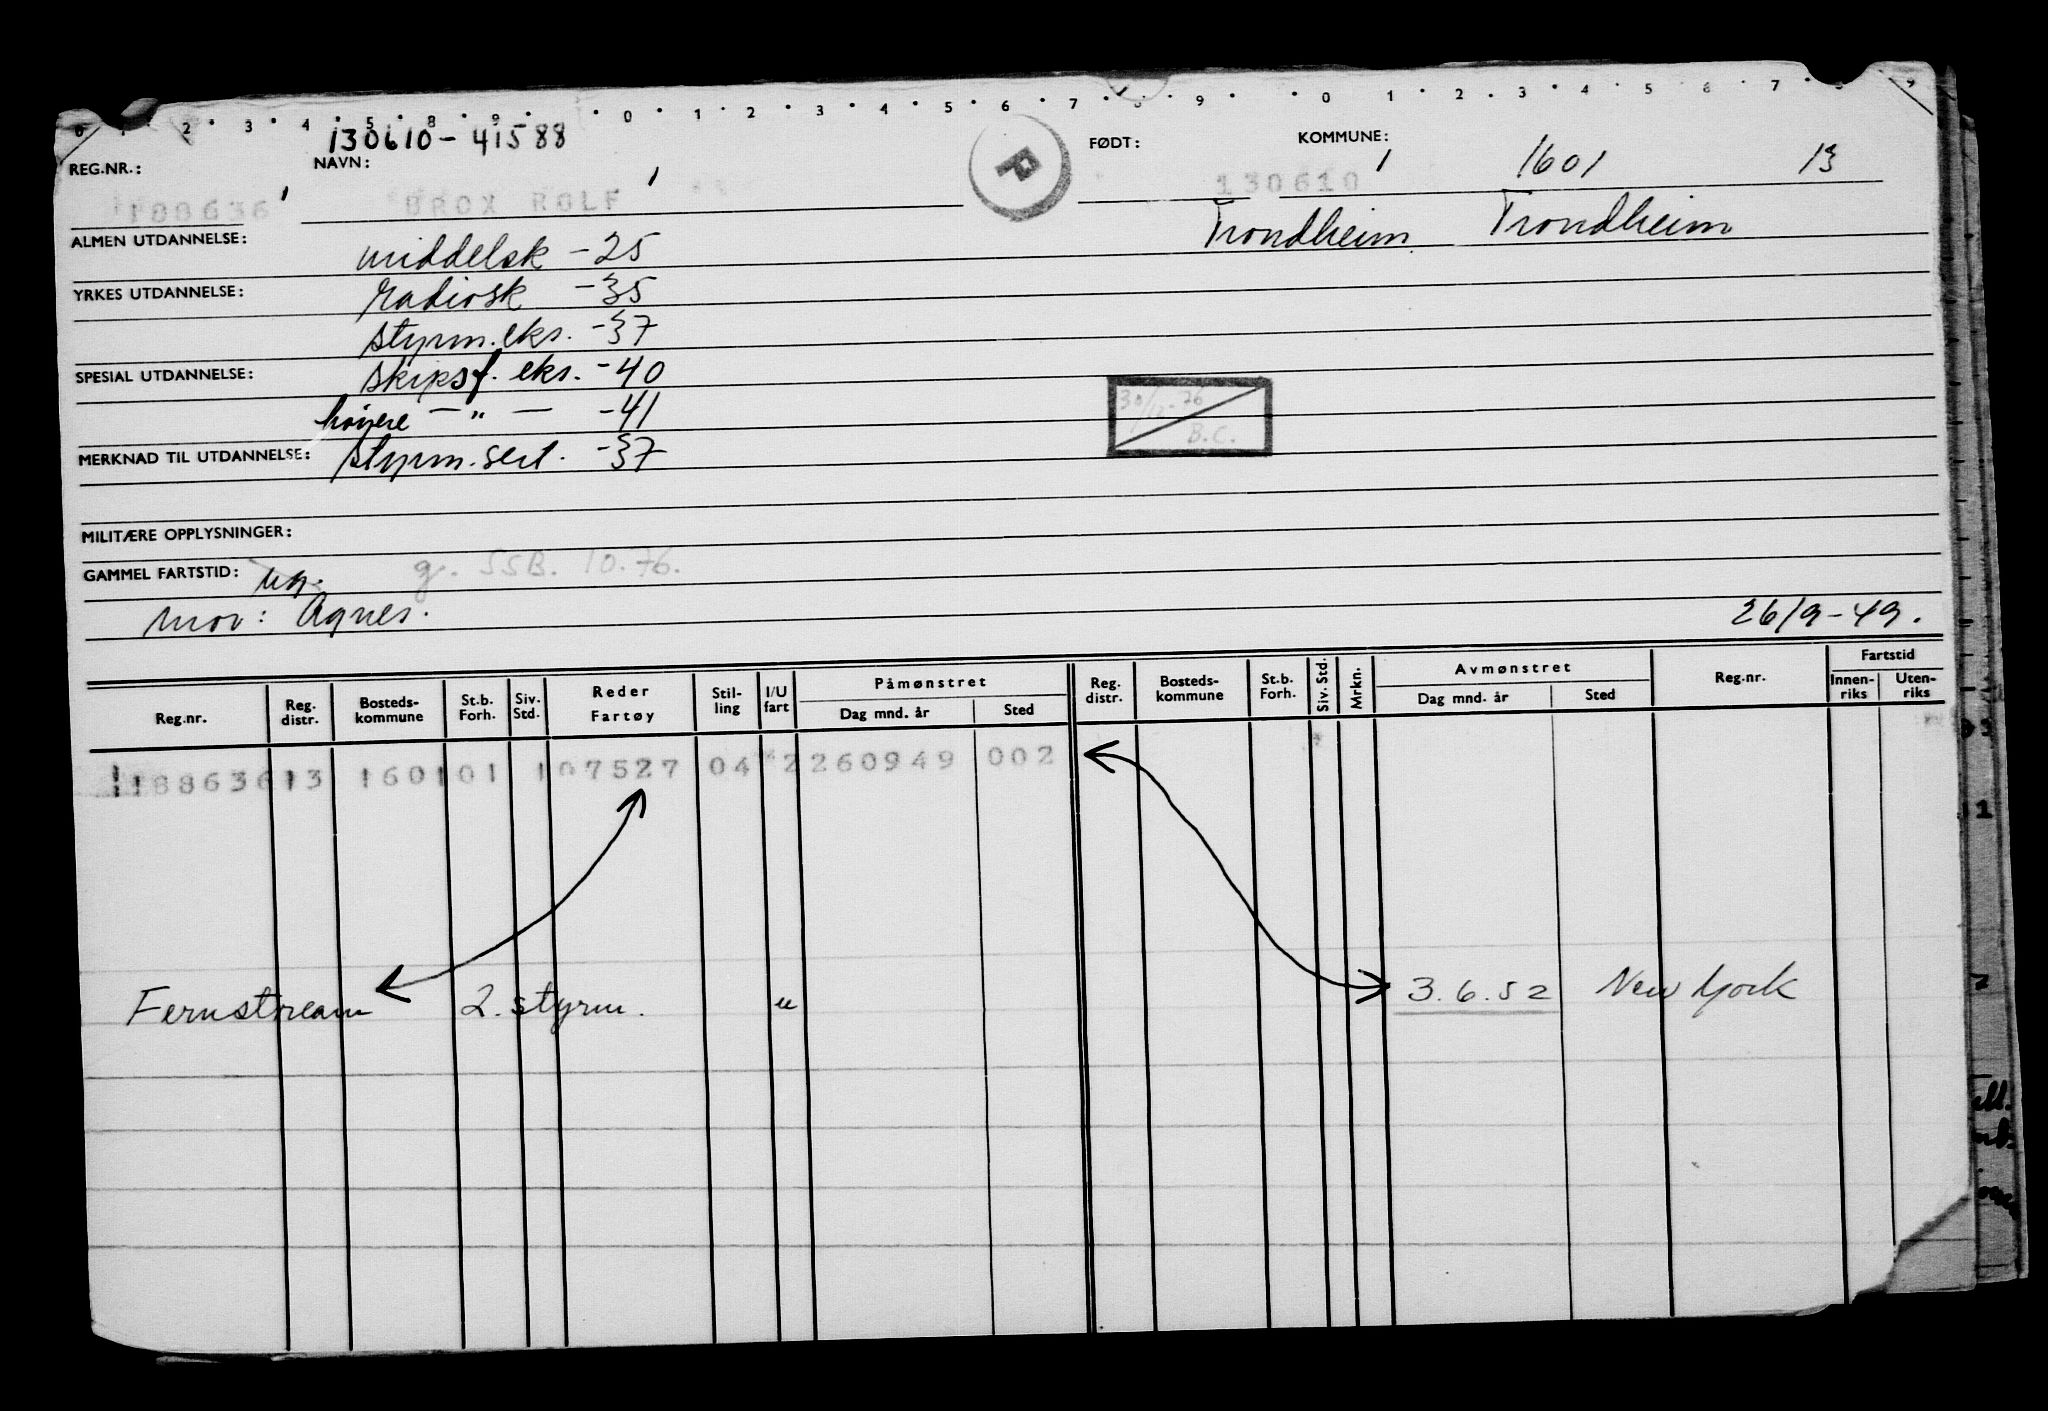 0 1 2 3 4 5 8 9 0 1 2 3 4 5 6 7 8 9 0 1 2 3 4 5 6 7 8 9
130610-41588
REG.NR.: NAVN: P FØDT: KOMMUNE:
1 1601 13
188636 BROX ROLF 130610
Trondheim Trondheim
ALMEN UTDANNELSE: middelsk -25
YRKES UTDANNELSE: radiosk -35
styrm.eks. -37
SPESIAL UTDANNELSE: skipsf. eks. -40
høyere — " — -41
30/12-76
B.C.
MERKNAD TIL UTDANNELSE: styrm.sert. -37
MILITÆRE OPPLYSNINGER:
GAMMEL FARTSTID: g. SSB. 10.76.
mor: Agnes.
26/9-49.
Reg.nr. Reg. distr. Bosteds-kommune St.b. Forh. Siv. Std. Reder Fartøy Stil-ling I/U fart Påmønstret Dag mnd. år Sted Reg. distr. Bosteds-kommune St.b. Forh. Siv. Std. Mrkn. Avmønstret Dag mnd. år Sted Reg.nr. Fartstid Innen-riks Uten-riks
188636 13 1601 01 1 07527 04 2 260949 002
Fernstream 2. styrm. u 3.6.52 New York